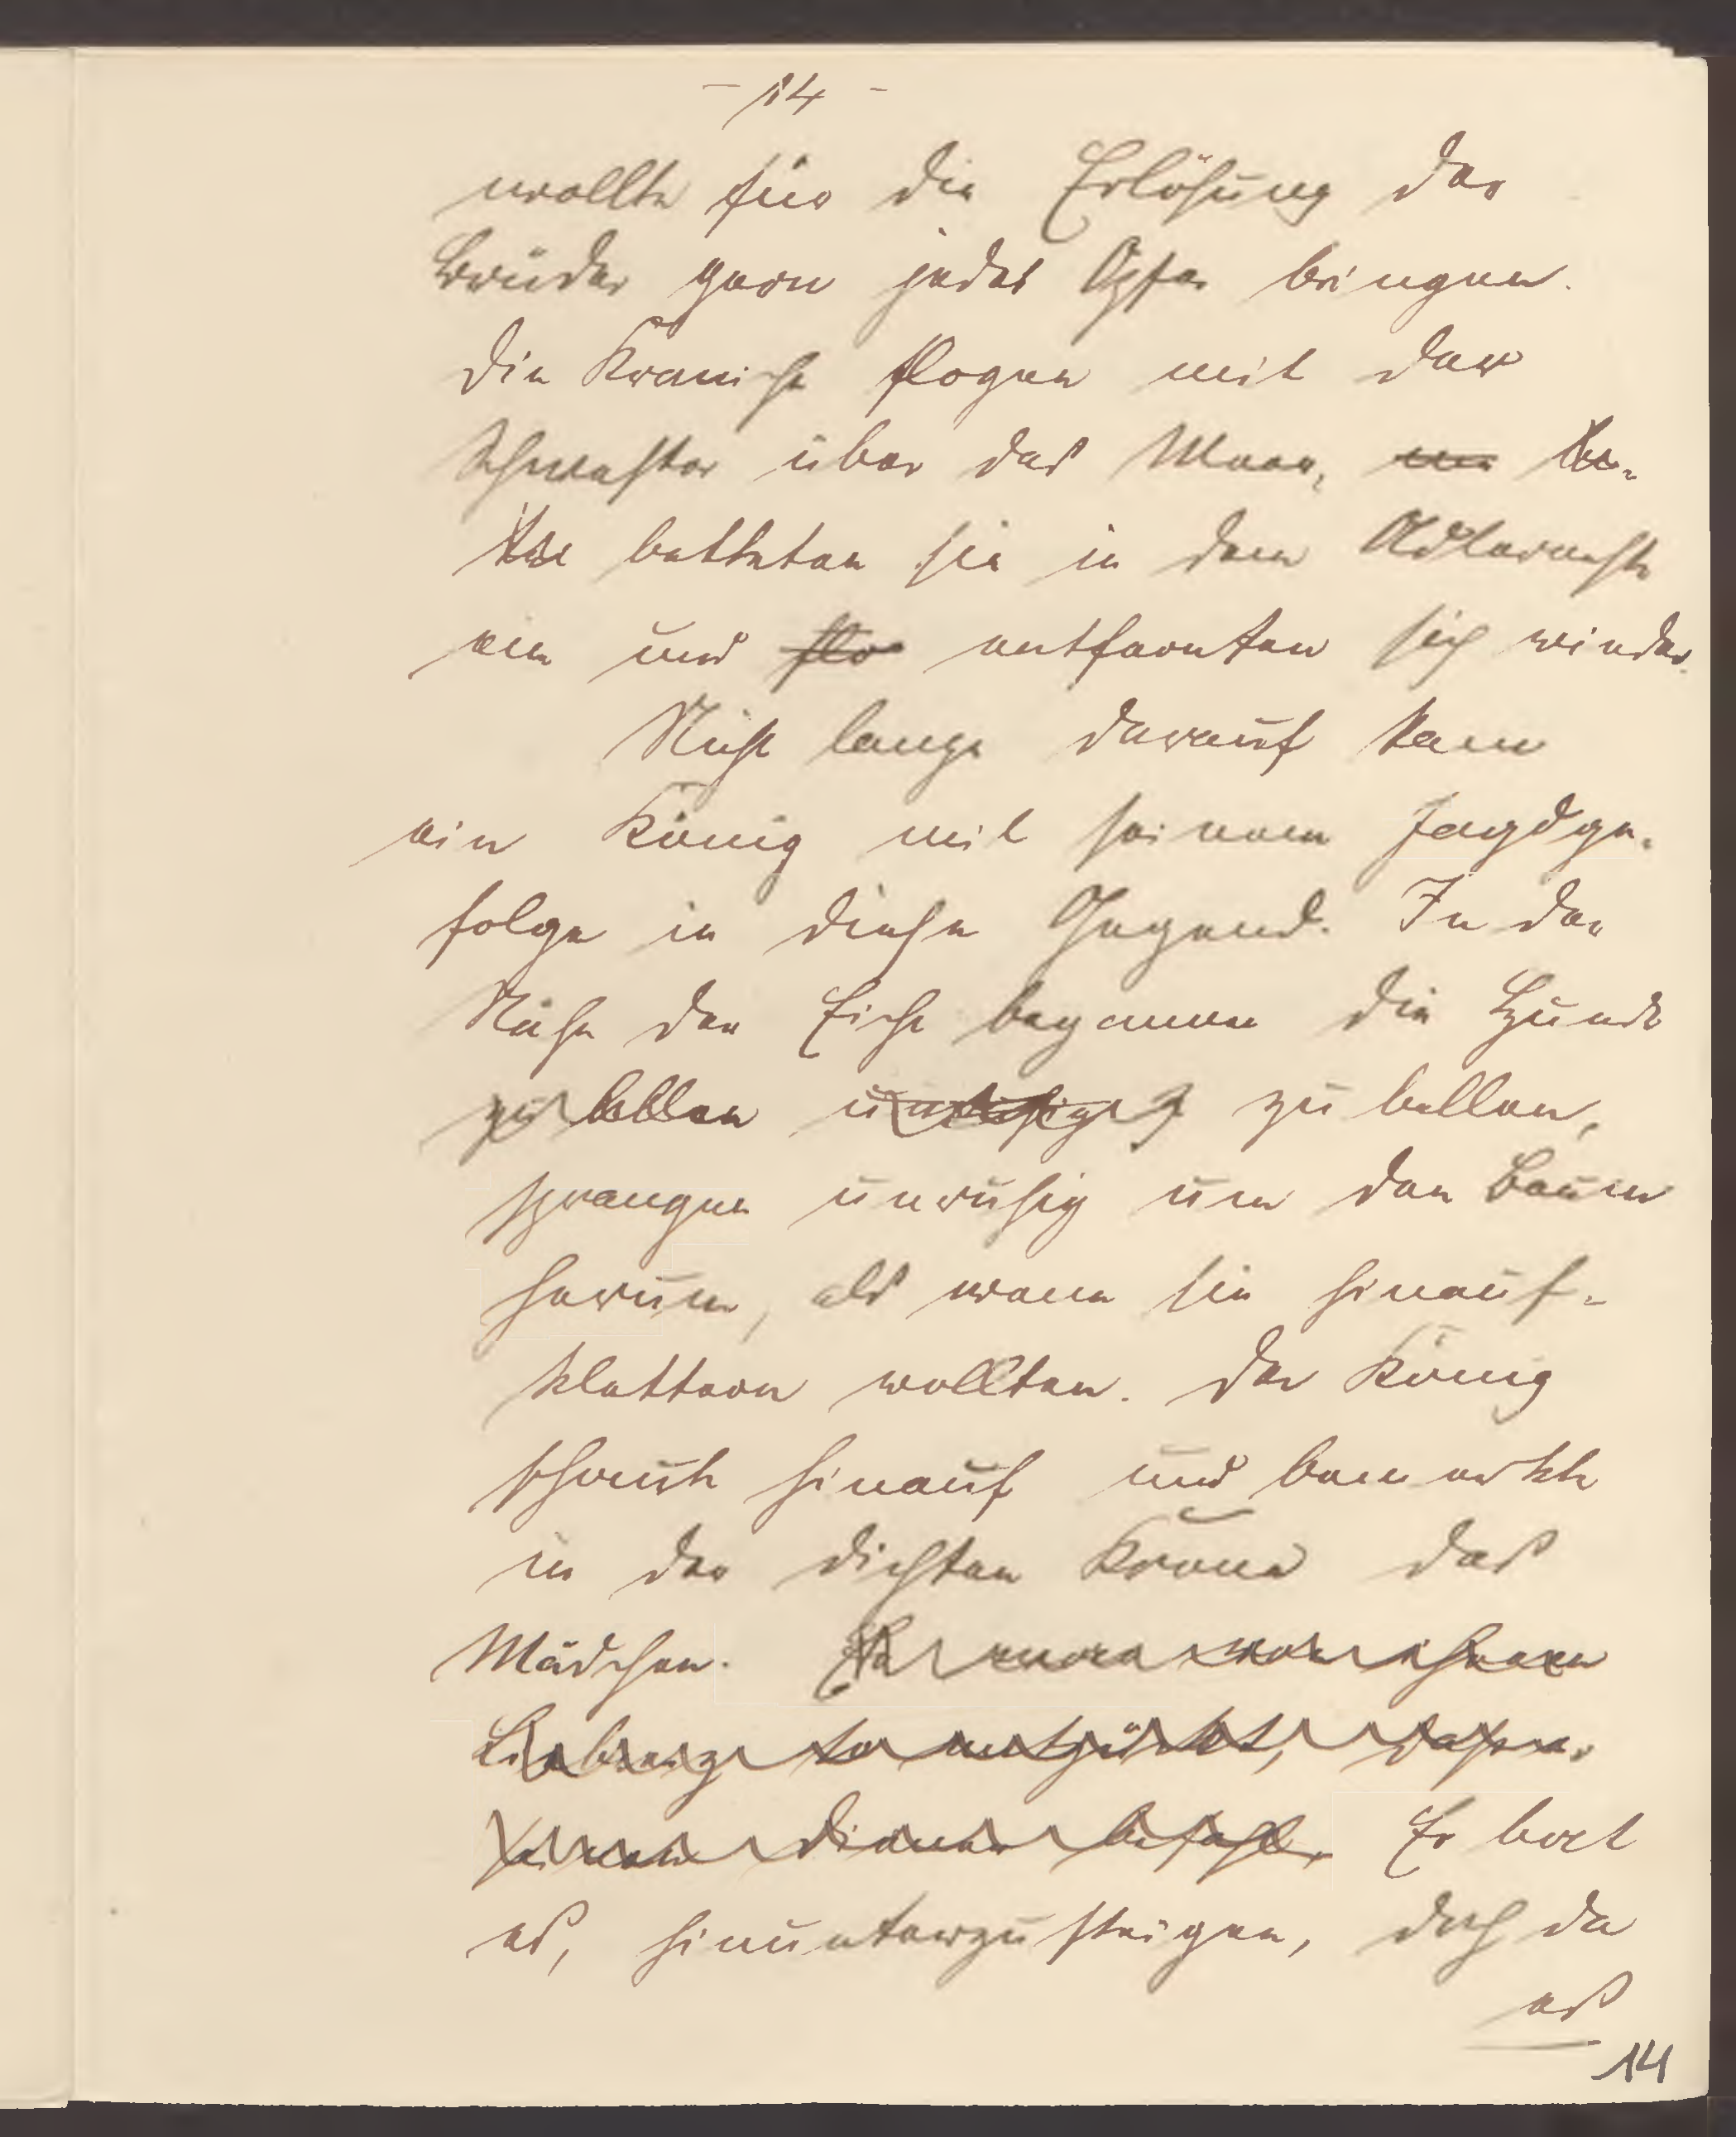 - 14 -
wollte für die Erlösung der
Brüder gern jedes Opfer bringen.
Die Kraniche flogen mit der
Schwester über das Meer,
betteten sie in dem Adlerneste
ein und flo entfernten sich wieder.
Nicht lange darauf kam
ein König mit seinem Jagdge-
folge in diese Gegend. In der
Nähe der Eiche begannen die Hunde
zu bellen zu bellen,
sprangen unruhig um den Baum
herum, als wenn sie hinauf-
klettern wollten. Der König
schaute hinauf und bemerkte
in der dichten Krone das
Mädchen. Er war von ihrem
Liebreize so entzückt, dass er
seinen Dienern befahl, Er bat
es, hinunterzusteigen, doch da
es
14